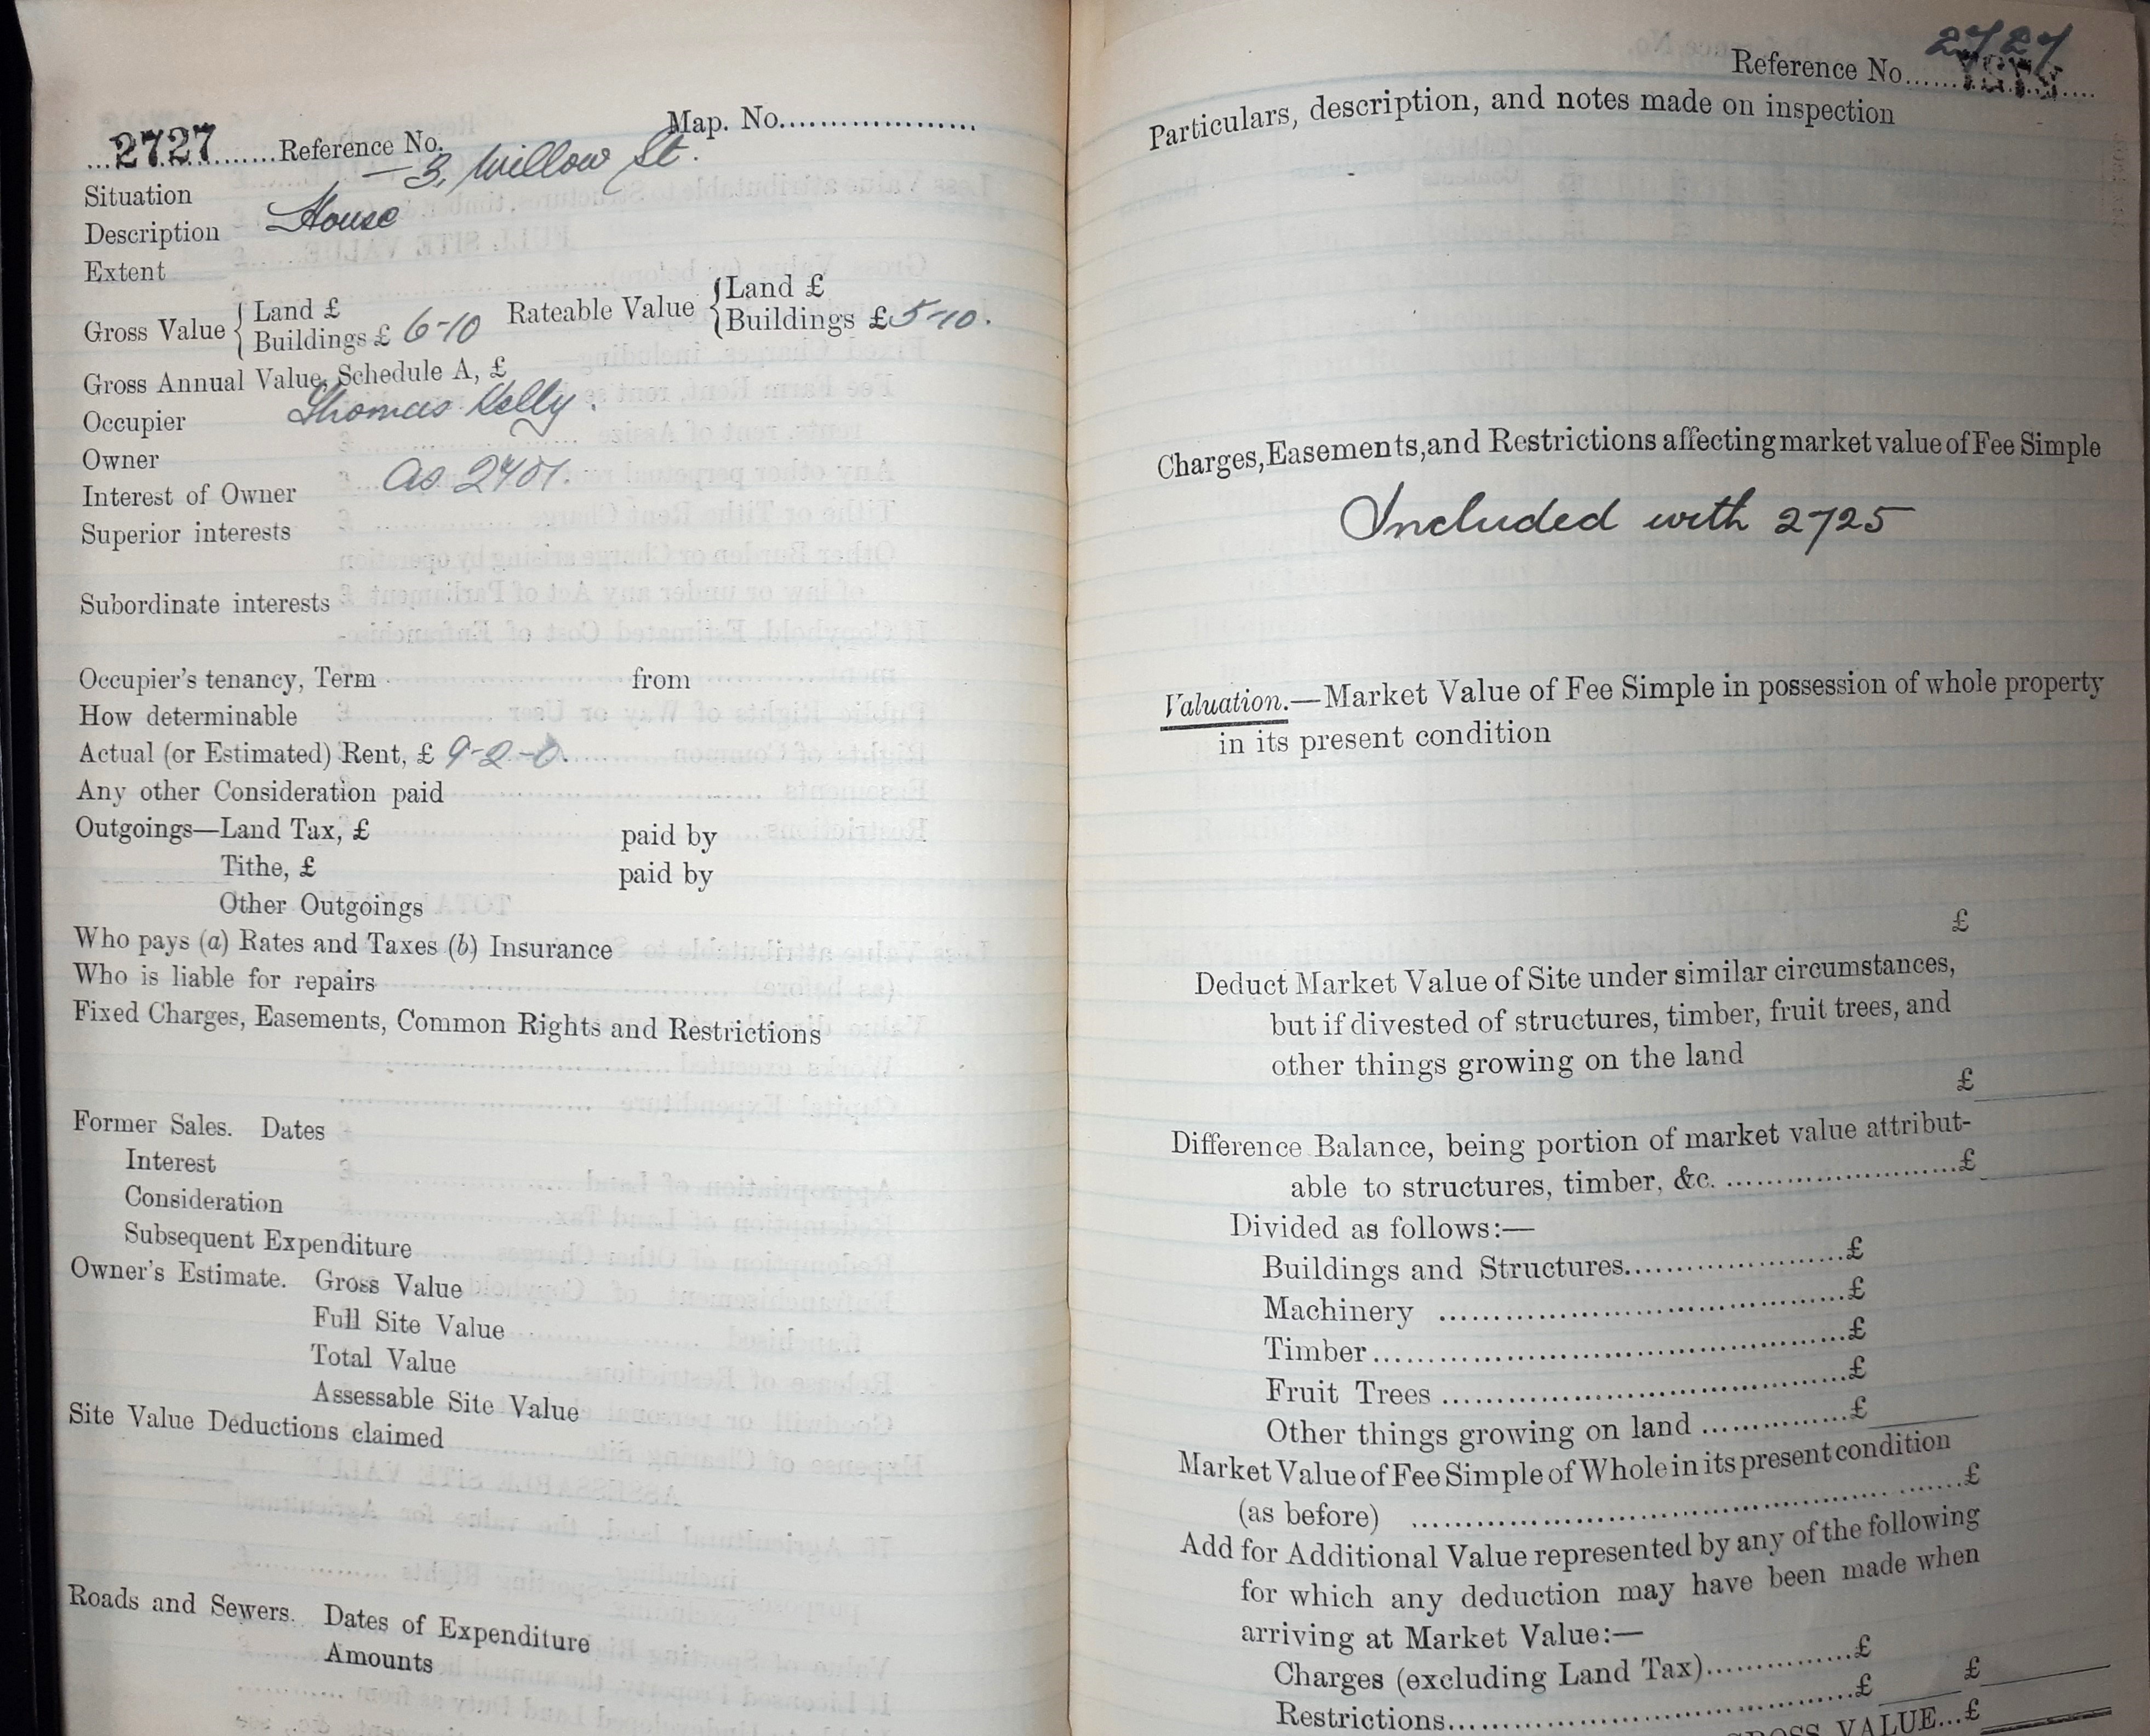 Map. No....................
...2727...........Reference No.
Situation — 3, Willow St.
Description House
Extent
Gross Value { Land £
Buildings £ 6-10
Rateable Value { Land £
Buildings £ 5-10.
Gross Annual Value, Schedule A, £
Occupier Thomas Kelly.
Owner
Interest of Owner as 2401.
Superior interests
Subordinate interests
Occupier's tenancy, Term from
How determinable
Actual (or Estimated) Rent, £ 9-2-0.
Any other Consideration paid
Outgoings—Land Tax, £ paid by
Tithe, £ paid by
Other Outgoings
Who pays (a) Rates and Taxes (b) Insurance
Who is liable for repairs
Fixed Charges, Easements, Common Rights and Restrictions
Former Sales. Dates
Interest
Consideration
Subsequent Expenditure
Owner's Estimate. Gross Value
Full Site Value
Total Value
Assessable Site Value
Site Value Deductions claimed
Roads and Sewers. Dates of Expenditure
Amounts
2727
Reference No............
Particulars, description, and notes made on inspection
Charges, Easements, and Restrictions affecting market value of Fee Simple
Included with 2725
Valuation.—Market Value of Fee Simple in possession of whole property
in its present condition
£
Deduct Market Value of Site under similar circumstances,
but if divested of structures, timber, fruit trees, and
other things growing on the land
£
Difference Balance, being portion of market value attribut-
able to structures, timber, &c. ........................£
Divided as follows:—
Buildings and Structures......................£
Machinery ..........................................£
Timber................................................£
Fruit Trees .........................................£
Other things growing on land ...............£
Market Value of Fee Simple of Whole in its present condition
(as before) ......................................................£
Add for Additional Value represented by any of the following
for which any deduction may have been made when
arriving at Market Value:—
Charges (excluding Land Tax)................£
£
Restrictions.........................................£
GROSS VALUE...£